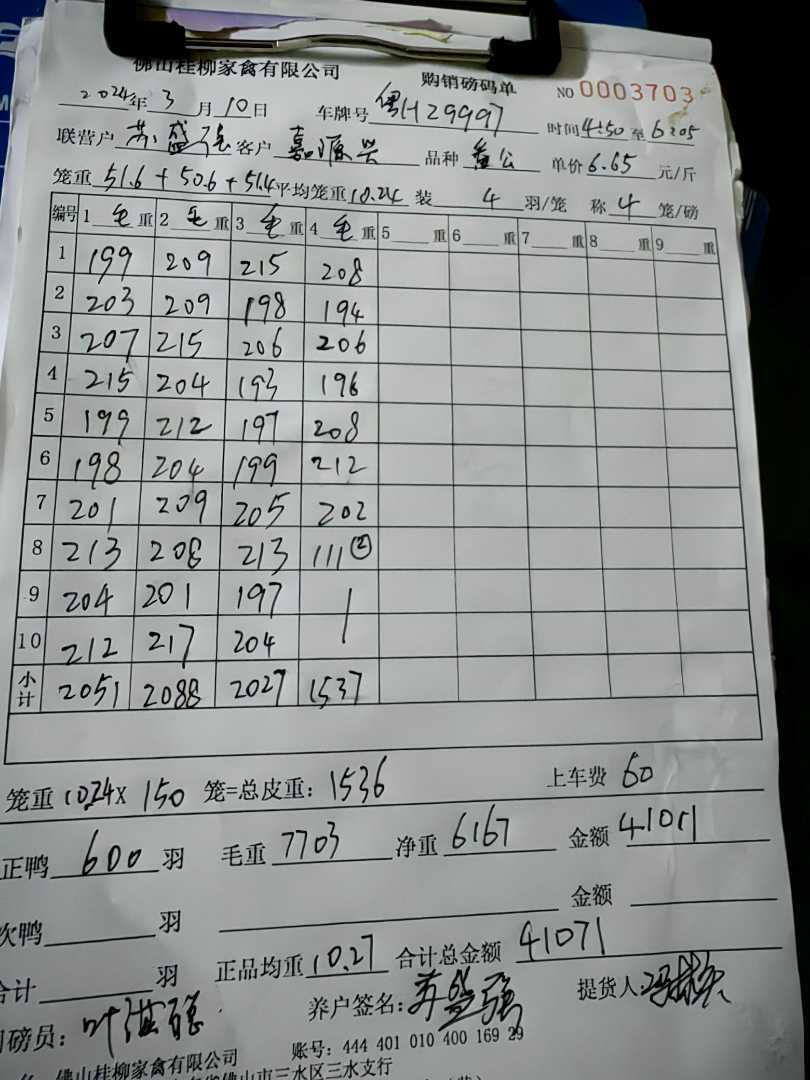 佛山桂柳家禽有限公司 购销磅码单 NO 0003703
2024年3月10日 车牌号 粤H29997 时间4:50至6:05
联营户 苏盛强 客户 嘉源兴 品种 公 单价6.65元/斤
笼重 51.6+50.6+51.4 平均笼重10.24 装 4 羽/笼 称 4 笼/磅
编号 1 毛 重 2 毛 重 3 毛 重 4 毛 重 5 重 6 重 7 重 8 重 9 重
1 199 209 215 208
2 203 209 198 194
3 207 215 206 206
4 215 204 193 196
5 199 212 197 208
6 198 204 199 212
7 201 209 205 202
8 213 208 213 111②
9 204 201 197
10 212 217 204
小计 2051 2088 2027 1537
笼重 10.24× 150 笼=总皮重: 1536 上车费 60
正鸭 600 羽 毛重 7703 净重 6167 金额 41011
次鸭 羽 金额
合计 羽 正品均重 10.27 合计总金额 41071
司磅员: 叶 强 养户签名: 苏盛强 提货人:
佛山桂柳家禽有限公司 账号: 444 401 010 400 169 29
省佛山市三水区三水支行